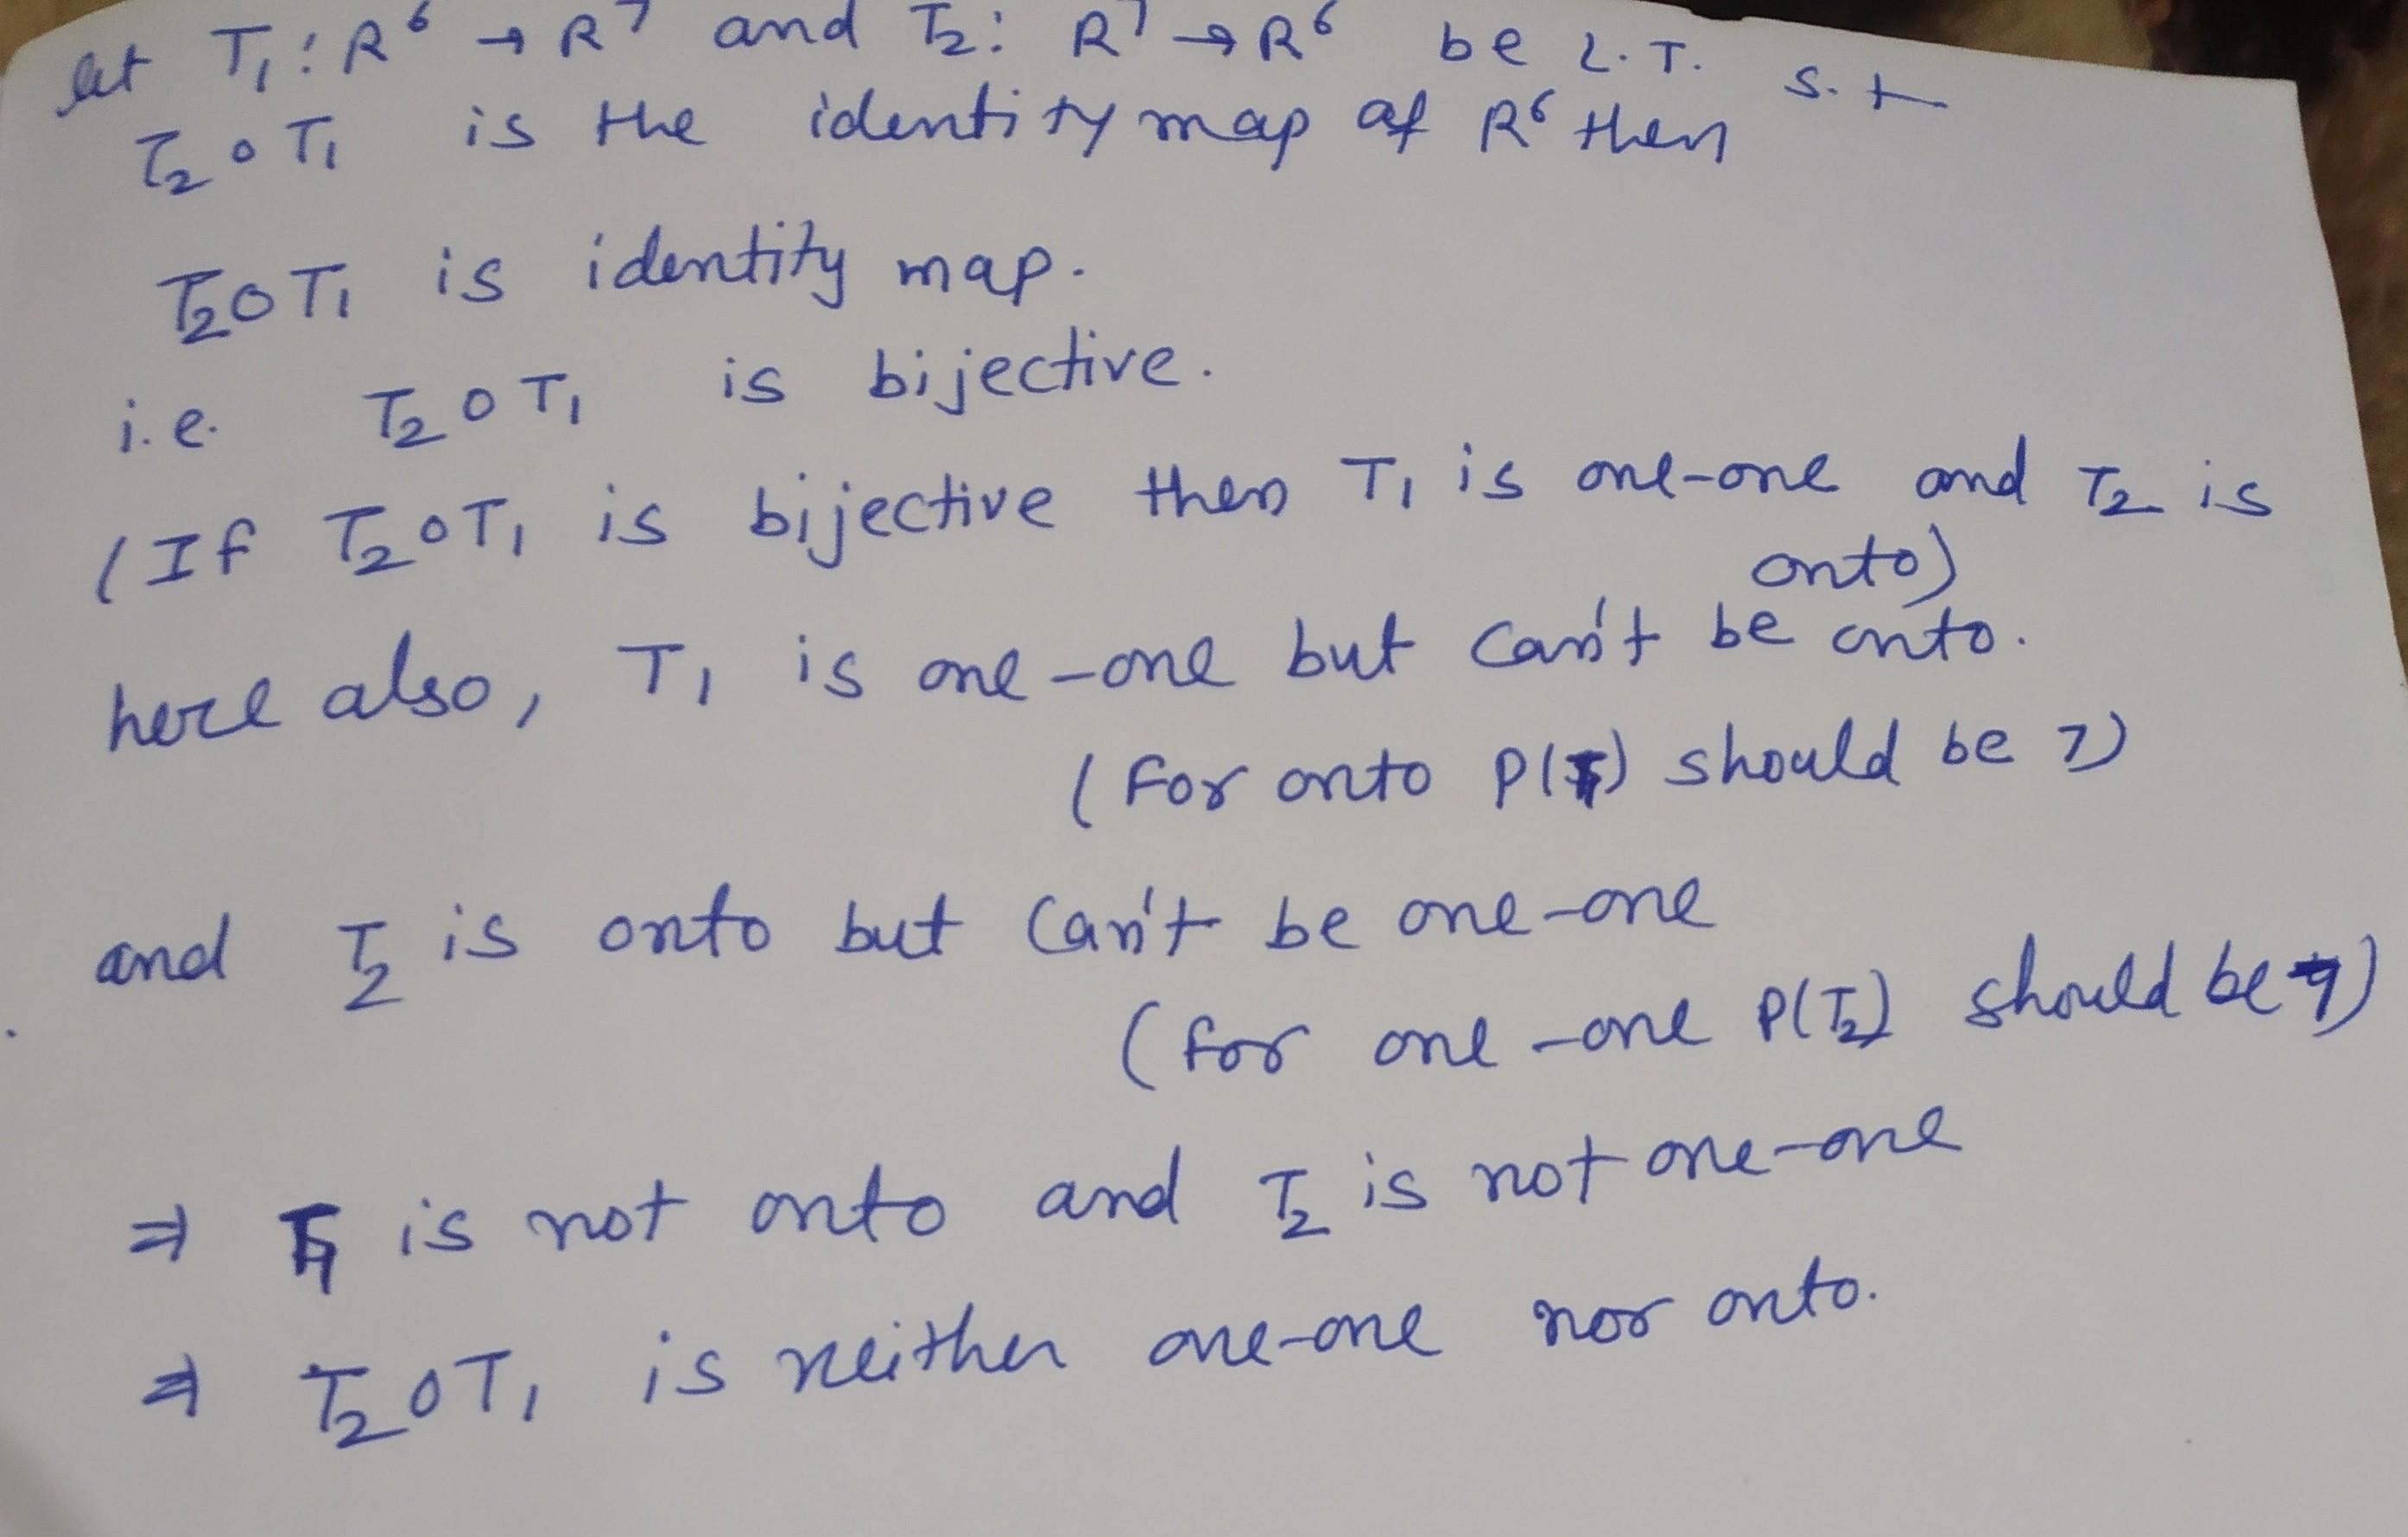 let T₁: R⁶ → R⁷ and T₂: R⁷ → R⁶ be L.T. s.t
T₂ o T₁ is the identity map of R⁶ then
T₂ o T₁ is identity map.
i.e. T₂ o T₁ is bijective.
(If T₂ o T₁ is bijective then T₁ is one-one and T₂ is
onto)
here also, T₁ is one-one but can't be onto.
(For onto ρ(T₁) should be 7)
and T₂ is onto but can't be one-one
(for one-one ρ(T₂) should be 7)
⇒ T₁ is not onto and T₂ is not one-one
⇒ T₂ o T₁ is neither one-one nor onto.